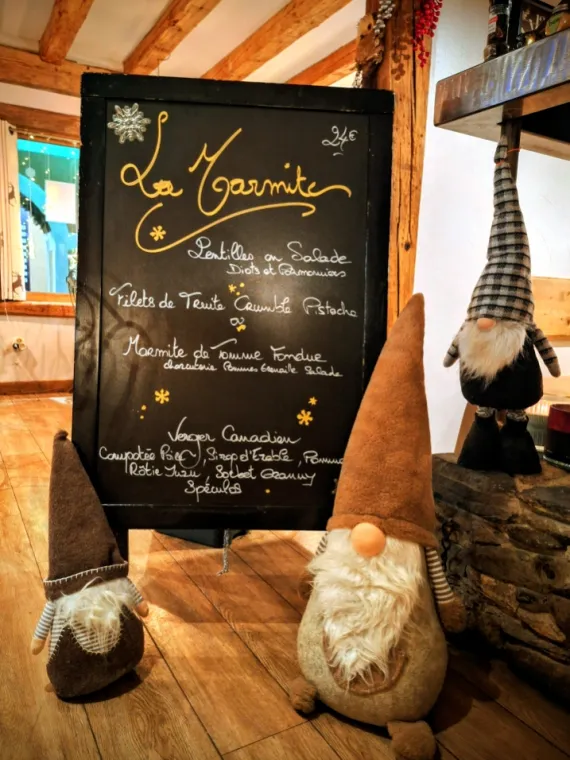 24€
La Marmite
Lentilles en Salade
Diots et
Filets de Truite Crumble Pistache
ou
Marmite de Tomme Fondue
charcuterie Pommes Grenaille Salade
Verger Canadien
Compotée Poire, Sirop d'Erable, Pomme
Rôtie Yuzu, Sorbet Granny
Spéculos